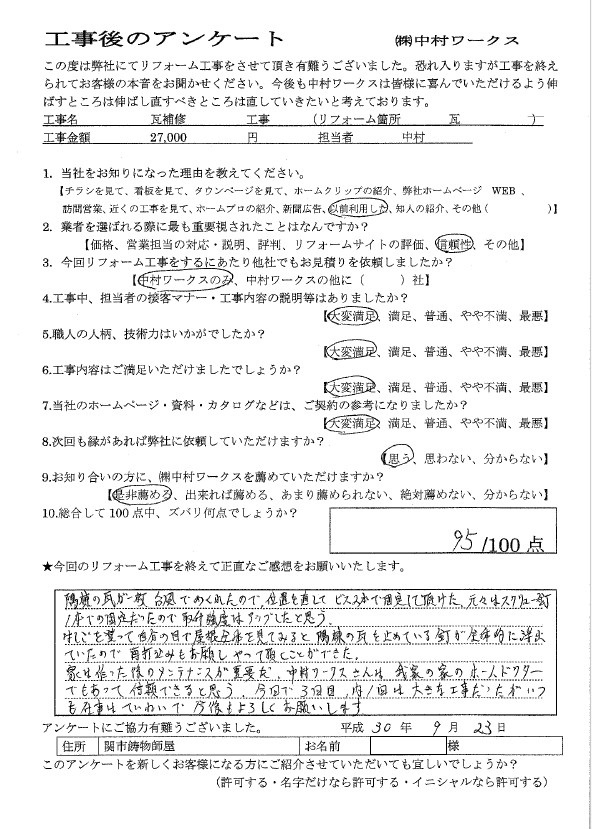 工事後のアンケート　㈱中村ワークス
この度は弊社にてリフォーム工事をさせて頂き有難うございました。恐れ入りますが工事を終え
られてお客様の本音をお聞かせください。今後も中村ワークスは皆様に喜んでいただけるよう伸
ばすところは伸ばし直すべきところは直していきたいと考えております。
工事名　瓦補修　工事　(リフォーム箇所　瓦　)
工事金額　27,000　円　担当者　中村
1. 当社をお知りになった理由を教えてください。
【チラシを見て、看板を見て、タウンページを見て、ホームクリップの紹介、弊社ホームページ　WEB 、
訪問営業、近くの工事を見て、ホームプロの紹介、新聞広告、以前利用した、知人の紹介、その他（　）】
2. 業者を選ばれる際に最も重要視されたことはなんですか？
【価格、営業担当の対応・説明、評判、リフォームサイトの評価、信頼性、その他】
3. 今回リフォーム工事をするにあたり他社でもお見積りを依頼しましたか？
【中村ワークスのみ、中村ワークスの他に（　）社】
4.工事中、担当者の接客マナー・工事内容の説明等はありましたか？
【大変満足、満足、普通、やや不満、最悪】
5.職人の人柄、技術力はいかがでしたか？
【大変満足、満足、普通、やや不満、最悪】
6.工事内容はご満足いただけましたでしょうか？
【大変満足、満足、普通、やや不満、最悪】
7.当社のホームページ・資料・カタログなどは、ご契約の参考になりましたか？
【大変満足、満足、普通、やや不満、最悪】
8.次回も縁があれば弊社に依頼していただけますか？
【思う、思わない、分からない】
9.お知り合いの方に、㈱中村ワークスを薦めていただけますか？
【是非薦める、出来れば薦める、あまり薦められない、絶対薦めない、分からない】
10.総合して100点中、ズバリ何点でしょうか？
95/100点
★今回のリフォーム工事を終えて正直なご感想をお願いいたします。
隅棟の瓦が一枚 台風でめくれたので、位置を直して ビス3本で固定して頂けた。元々はスクリュー釘
1本での固定だったので取付強度はアップしたと思う。
はしごを登って自分の目で屋根全体を見てみると 隅棟の瓦を止めている釘が全体的に浮
ていたので 再打込みもお願し やって頂くことができた。
家は作った後のメンテナンスが重要だ。中村ワークスさんは 我家の家のホームドクター
でもあって信頼できると思う。今回で3回目、内1回は大きな工事だったが いつ
も仕事はていねいで 今後もよろしくお願いします
アンケートにご協力有難うございました。　平成 30 年 9 月 23 日
住所　関市鋳物師屋　お名前　様
このアンケートを新しくお客様になる方にご紹介させていただいても宜しいでしょうか？
（許可する・名字だけなら許可する・イニシャルなら許可する）